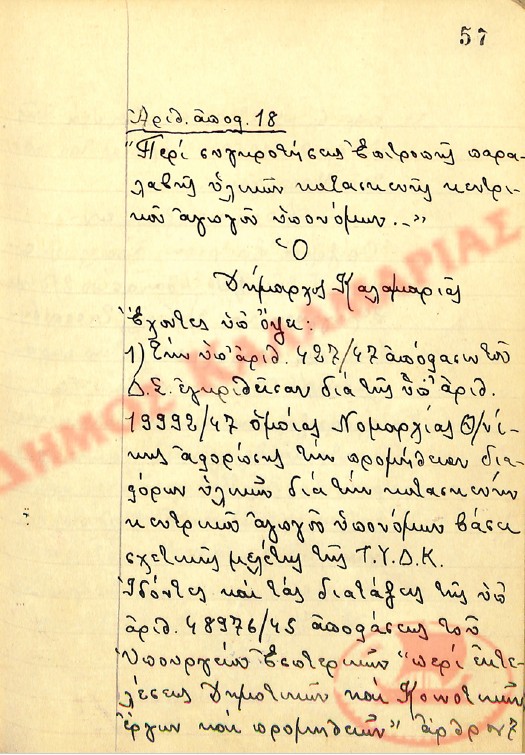 57
Ἀριθ. ἀποφ. 18
"Περί συγκροτήσεως Ἐπιτροπῆς παρα-
λαβῆς ὑλικῶν κατασκευῆς κεντρι-
κοῦ ἀγωγοῦ ὑπονόμων..-"
Ὁ
Δήμαρχος Καλαμαριᾶς
Ἔχοντες ὑπ' ὄψει:
1) Τήν ὑπ' ἀριθ. 427/47 ἀπόφασιν τοῦ
Δ.Σ. ἐγκριθεῖσαν διά τῆς ὑπ' ἀριθ.
19992/47 ὁμοίας Νομαρχίας Θ/νί-
κης ἀφορώσης τήν προμήθειαν δια-
φόρων ὑλικῶν διά τήν κατασκευήν
κεντρικοῦ ἀγωγοῦ ὑπονόμων βάσει
σχετικῆς μελέτης τῆς Τ.Υ.Δ.Κ.
Ἰδόντες καί τάς διατάξεις τῆς ὑπ'
ἀριθ. 48976/45 ἀποφάσεως τοῦ
Ὑπουργείου Ἐσωτερικῶν "περί ἐκτε-
λέσεως Δημοτικῶν καί Κοινοτικῶν
ἔργων καί προμηθειῶν" ἄρθρον 7
ΔΗΜΟΣ ΚΑΛΑΜΑΡΙΑΣ